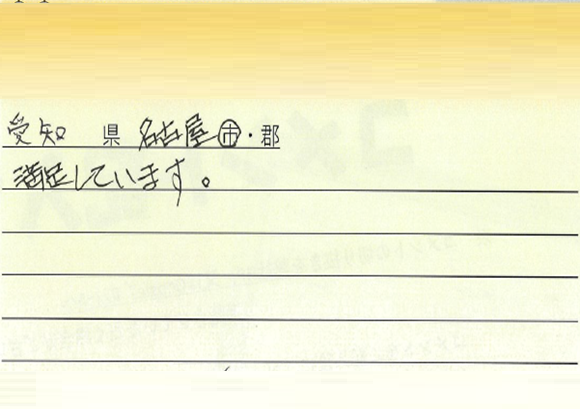 愛知 県 名古屋 市・郡
満足しています。